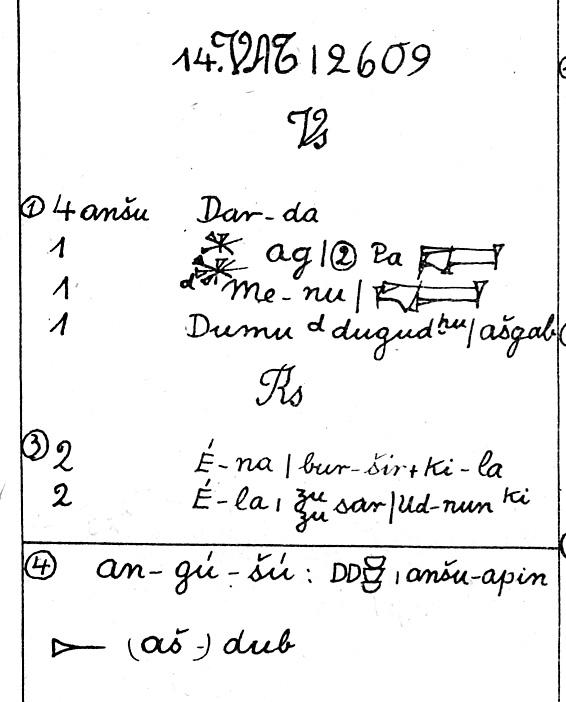 14. VAT 12609
Vs
① 4 anšu Dar-da
1 ag | ② Pa
1 Me-nu |
1 Dumu ᵈdugudᵸᵘ | ašgab
Rs
③ 2 É-na | bur-šir+ki-la
2 É-la | zu zu sar | Ud-nun ᵏⁱ
④ an-gú-šú : DD | anšu-apin
(aš-) dub